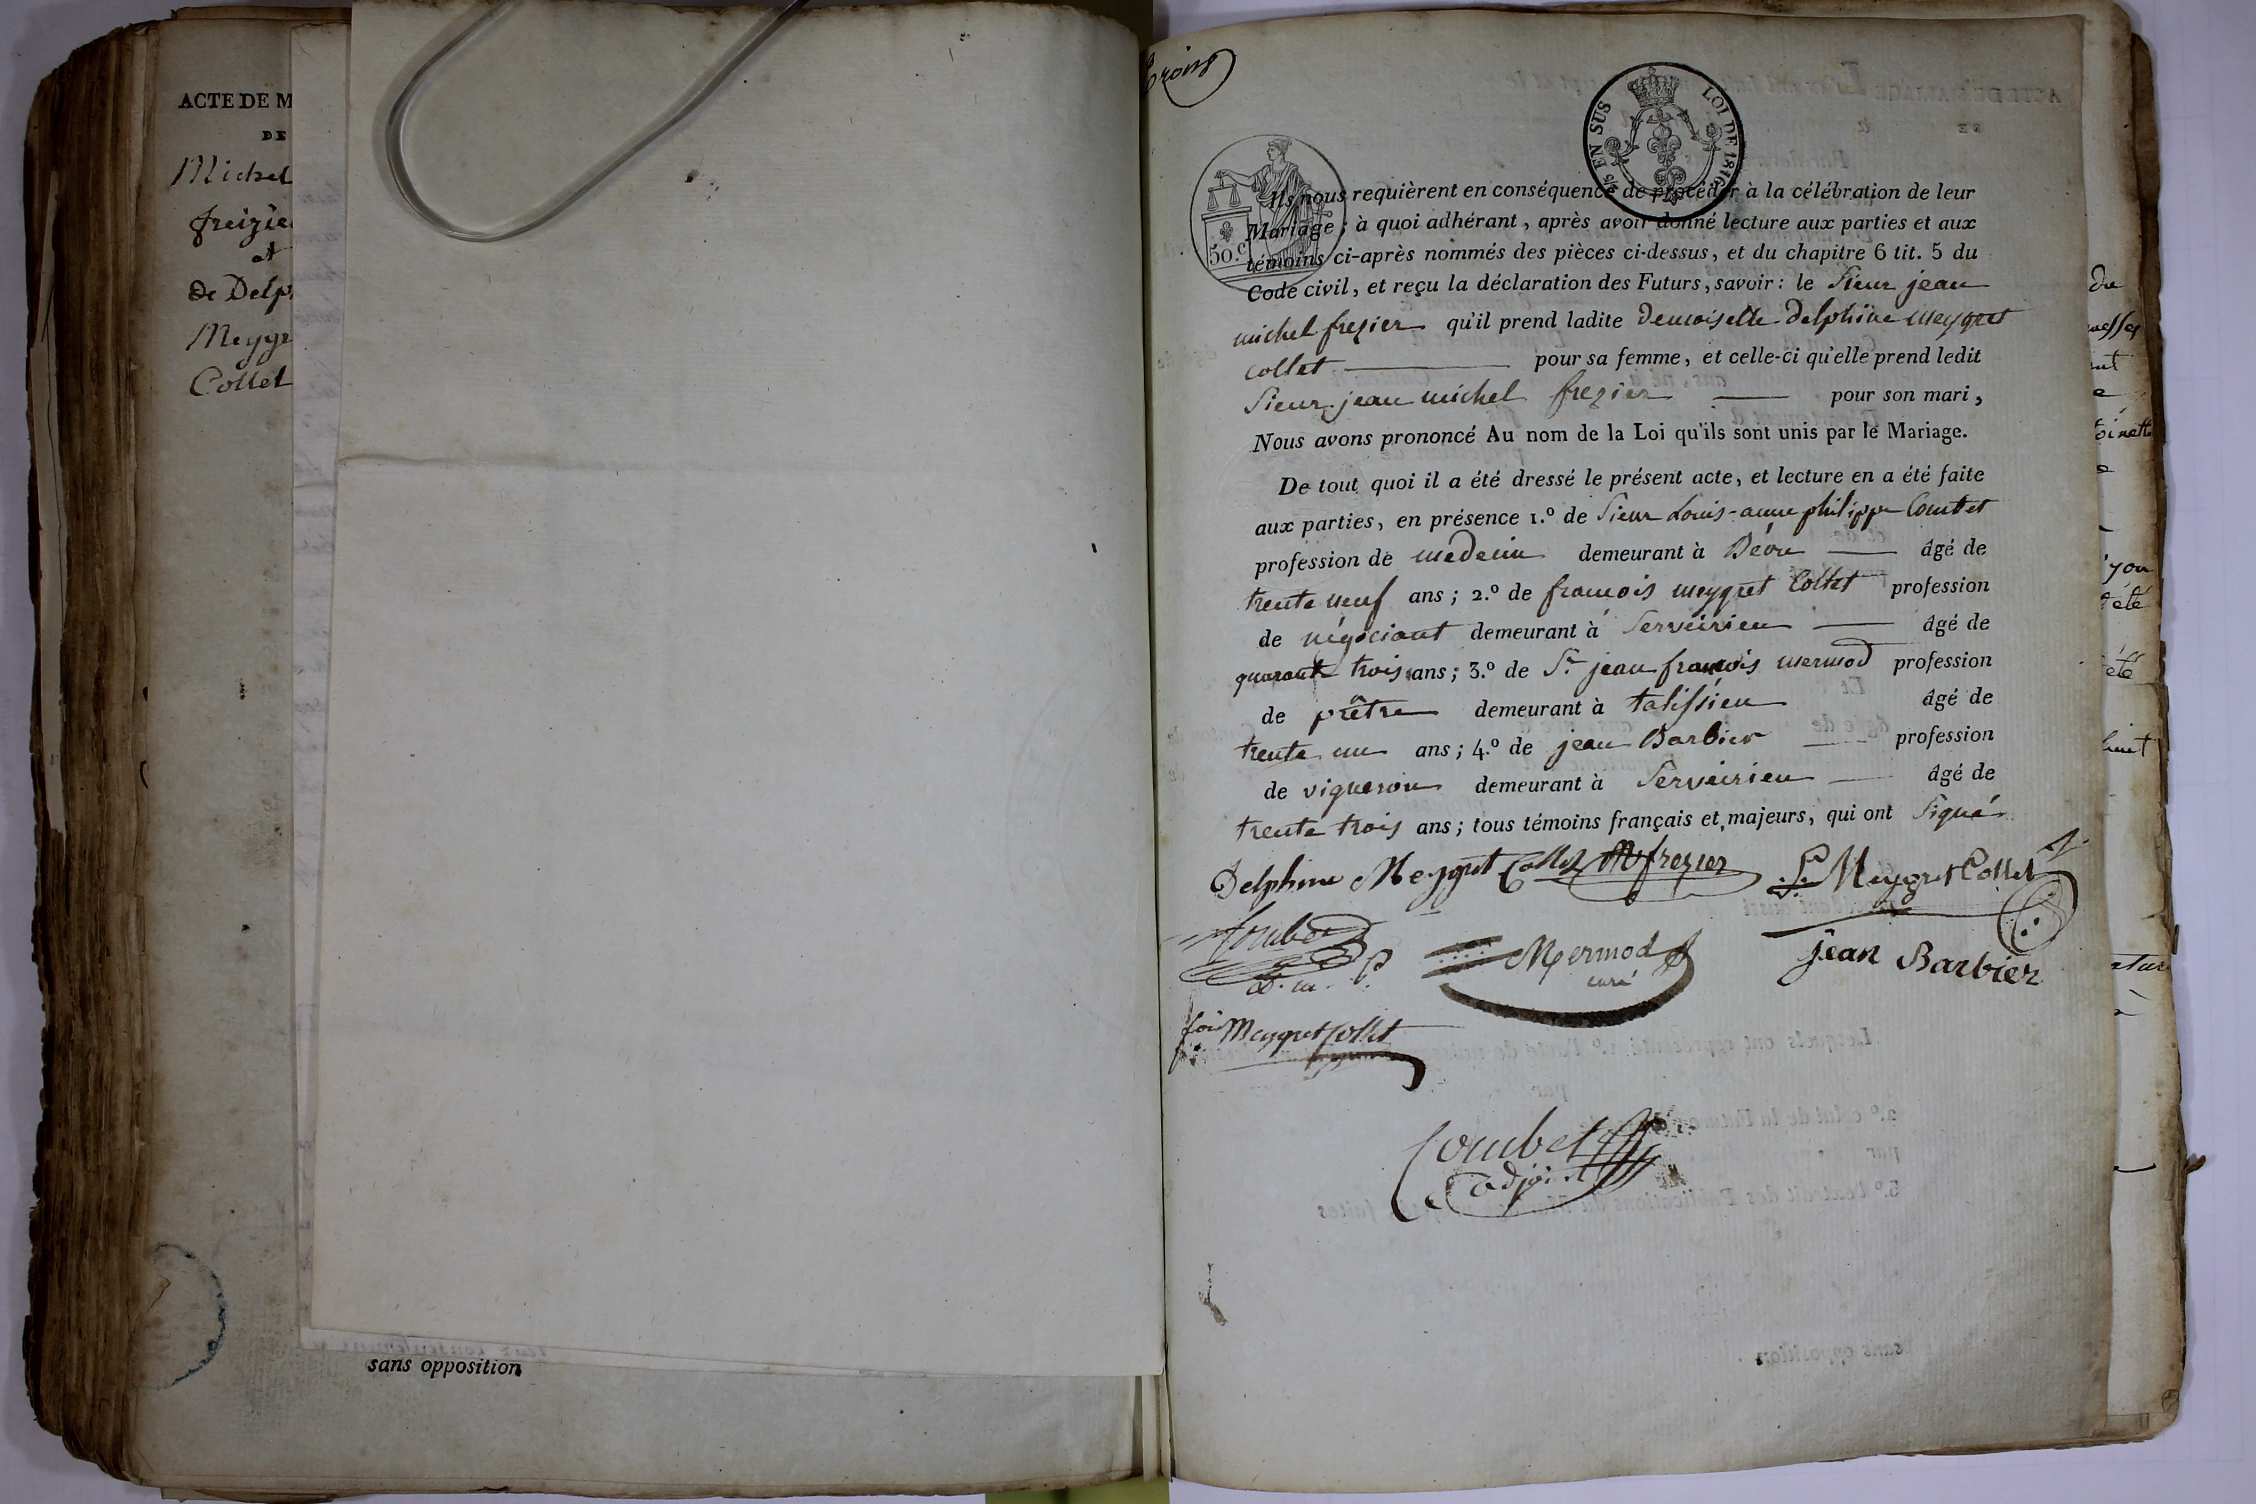 ACTE DE M
DE
Michel
freizie
et
de Delp
Meygr
Collet
sans opposition
trois
2/5 EN SUS LOI DE 1816
50.c
Ils nous requièrent en conséquence de procéder à la célébration de leur
Mariage ; à quoi adhérant, après avoir donné lecture aux parties et aux
témoins ci-après nommés des pièces ci-dessus, et du chapitre 6 tit. 5 du
Code civil, et reçu la déclaration des Futurs, savoir : le Sieur jean
michel frezier qu'il prend ladite Demoiselle delphine meygret
collet pour sa femme, et celle-ci qu'elle prend ledit
Sieur jean michel frezier pour son mari,
Nous avons prononcé Au nom de la Loi qu'ils sont unis par le Mariage.
De tout quoi il a été dressé le présent acte, et lecture en a été faite
aux parties, en présence 1.º de Sieur Louis-anne philippe Combet
profession de medecin demeurant à Béon âgé de
trente neuf ans ; 2.º de francois meygret Collet profession
de négociant demeurant à Serveirieu âgé de
quarante trois ans ; 3.º de Sr jean francois mermod profession
de prêtre demeurant à talissieu âgé de
trente un ans ; 4.º de jean Barbier profession
de vigneron demeurant à Serveirieu âgé de
trente trois ans ; tous témoins français et majeurs, qui ont signé
Delphine Meygret Collet Mfrezier Meygret Collet
Combet Mermod jean Barbier
D. m. P. curé
foi Meygret Collet
Combet
adjoint
du
oinette
yon
été
été